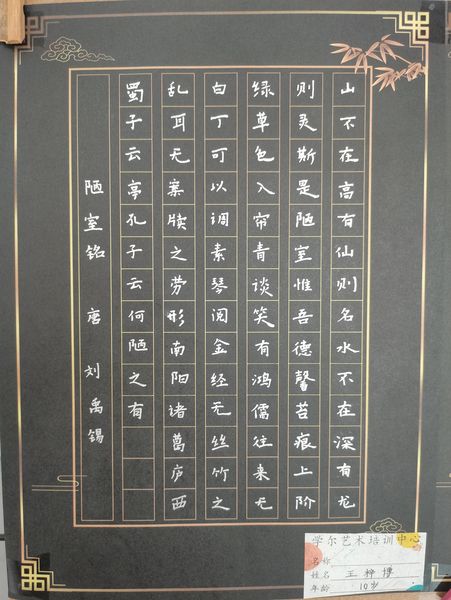 山不在高有仙则名水不在深有龙
则灵斯是陋室惟吾德馨苔痕上阶
绿草色入帘青谈笑有鸿儒往来无
白丁可以调素琴阅金经无丝竹之
乱耳无案牍之劳形南阳诸葛庐西
蜀子云亭孔子云何陋之有
陋室铭 唐 刘禹锡
学尔艺术培训中心
名称
姓名 王梓博
年龄 10岁